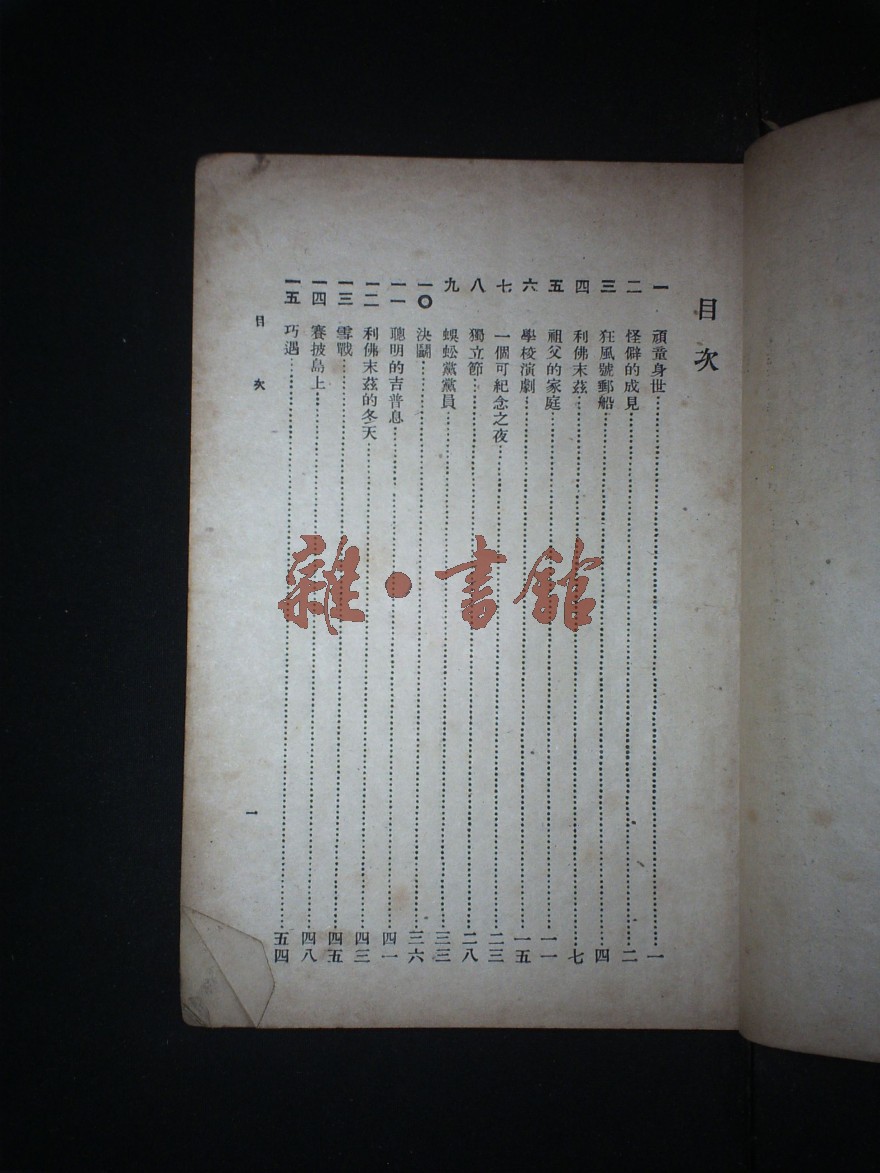 目次
一 頑童身世 一
二 怪僻的成見 二
三 狂風號郵船 四
四 利佛末茲 七
五 祖父的家庭 一一
六 學校演劇 一五
七 一個可紀念之夜 二三
八 獨立節 二八
九 蜈蚣黨黨員 三三
一〇 決鬭 三六
一一 聰明的吉普息 四一
一二 利佛末茲的冬天 四三
一三 雪戰 四五
一四 賽披島上 四八
一五 巧遇 五四
目次 一
雜·書館